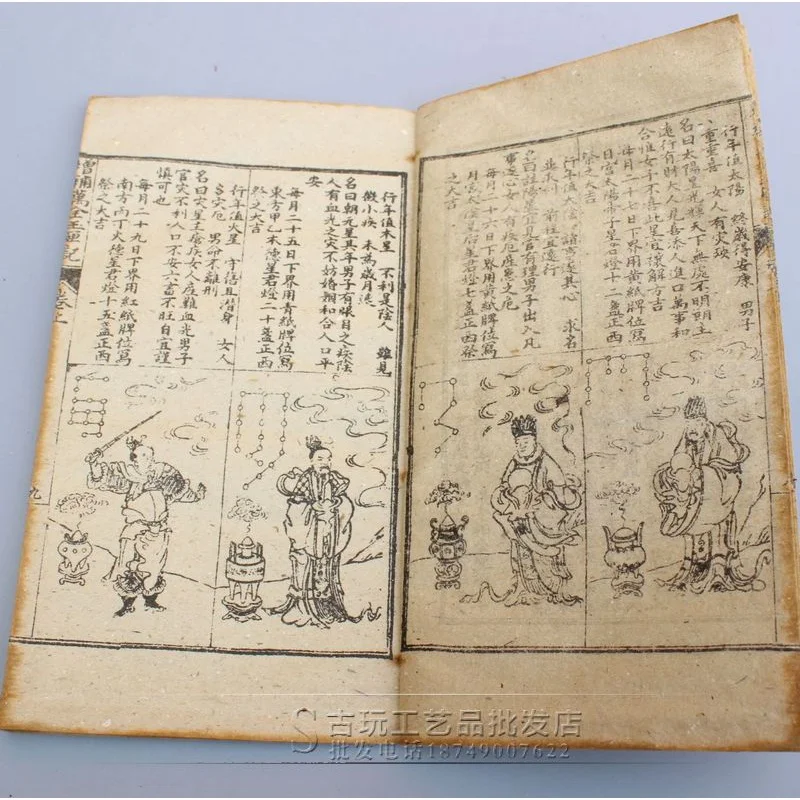 行年值太陽 終歲得安康 男子
八重重喜 女人有灾殃
名曰太陽星光輝天下無處不明朝王
遠行有財大人見喜添人進口萬事和
合惟女子不喜此星宜禳解方吉
每月二十七日下界用黄紙牌位寫
日宮太陽帝子星君燈十二盞正西
祭之大吉
行年值太陰 諸事遂其心 求名
並求利 前往宜遠行
男子出入凡
事遂心女人有疾厄産憂之厄
每月二十六日下界用黄紙牌位寫
月宮太陰皇后星君燈七盞正西祭
之大吉
行年值木星 不利是陰人 雖見
微小疾 未為歲月迍
名曰朝元星其年男子有眼目之疾陰
人有血光之灾不妨婚姻和合人口平
安
每月二十五日下界用青紙牌位寫
東方甲乙木德星君燈二十盞正西
祭之大吉
行年值火星 守信且潛身 女人
多灾厄 男命不離刑
名曰灾星主瘡疾女人産難血光男子
官灾不利人口不安六畜不旺自宜謹
慎可也
每月二十九日下界用紅紙牌位寫
南方丙丁火德星君燈十五盞正西
祭之大吉
增補萬全玉匣記
卷上
九
S古玩工艺品批发店
批发电话18749007622